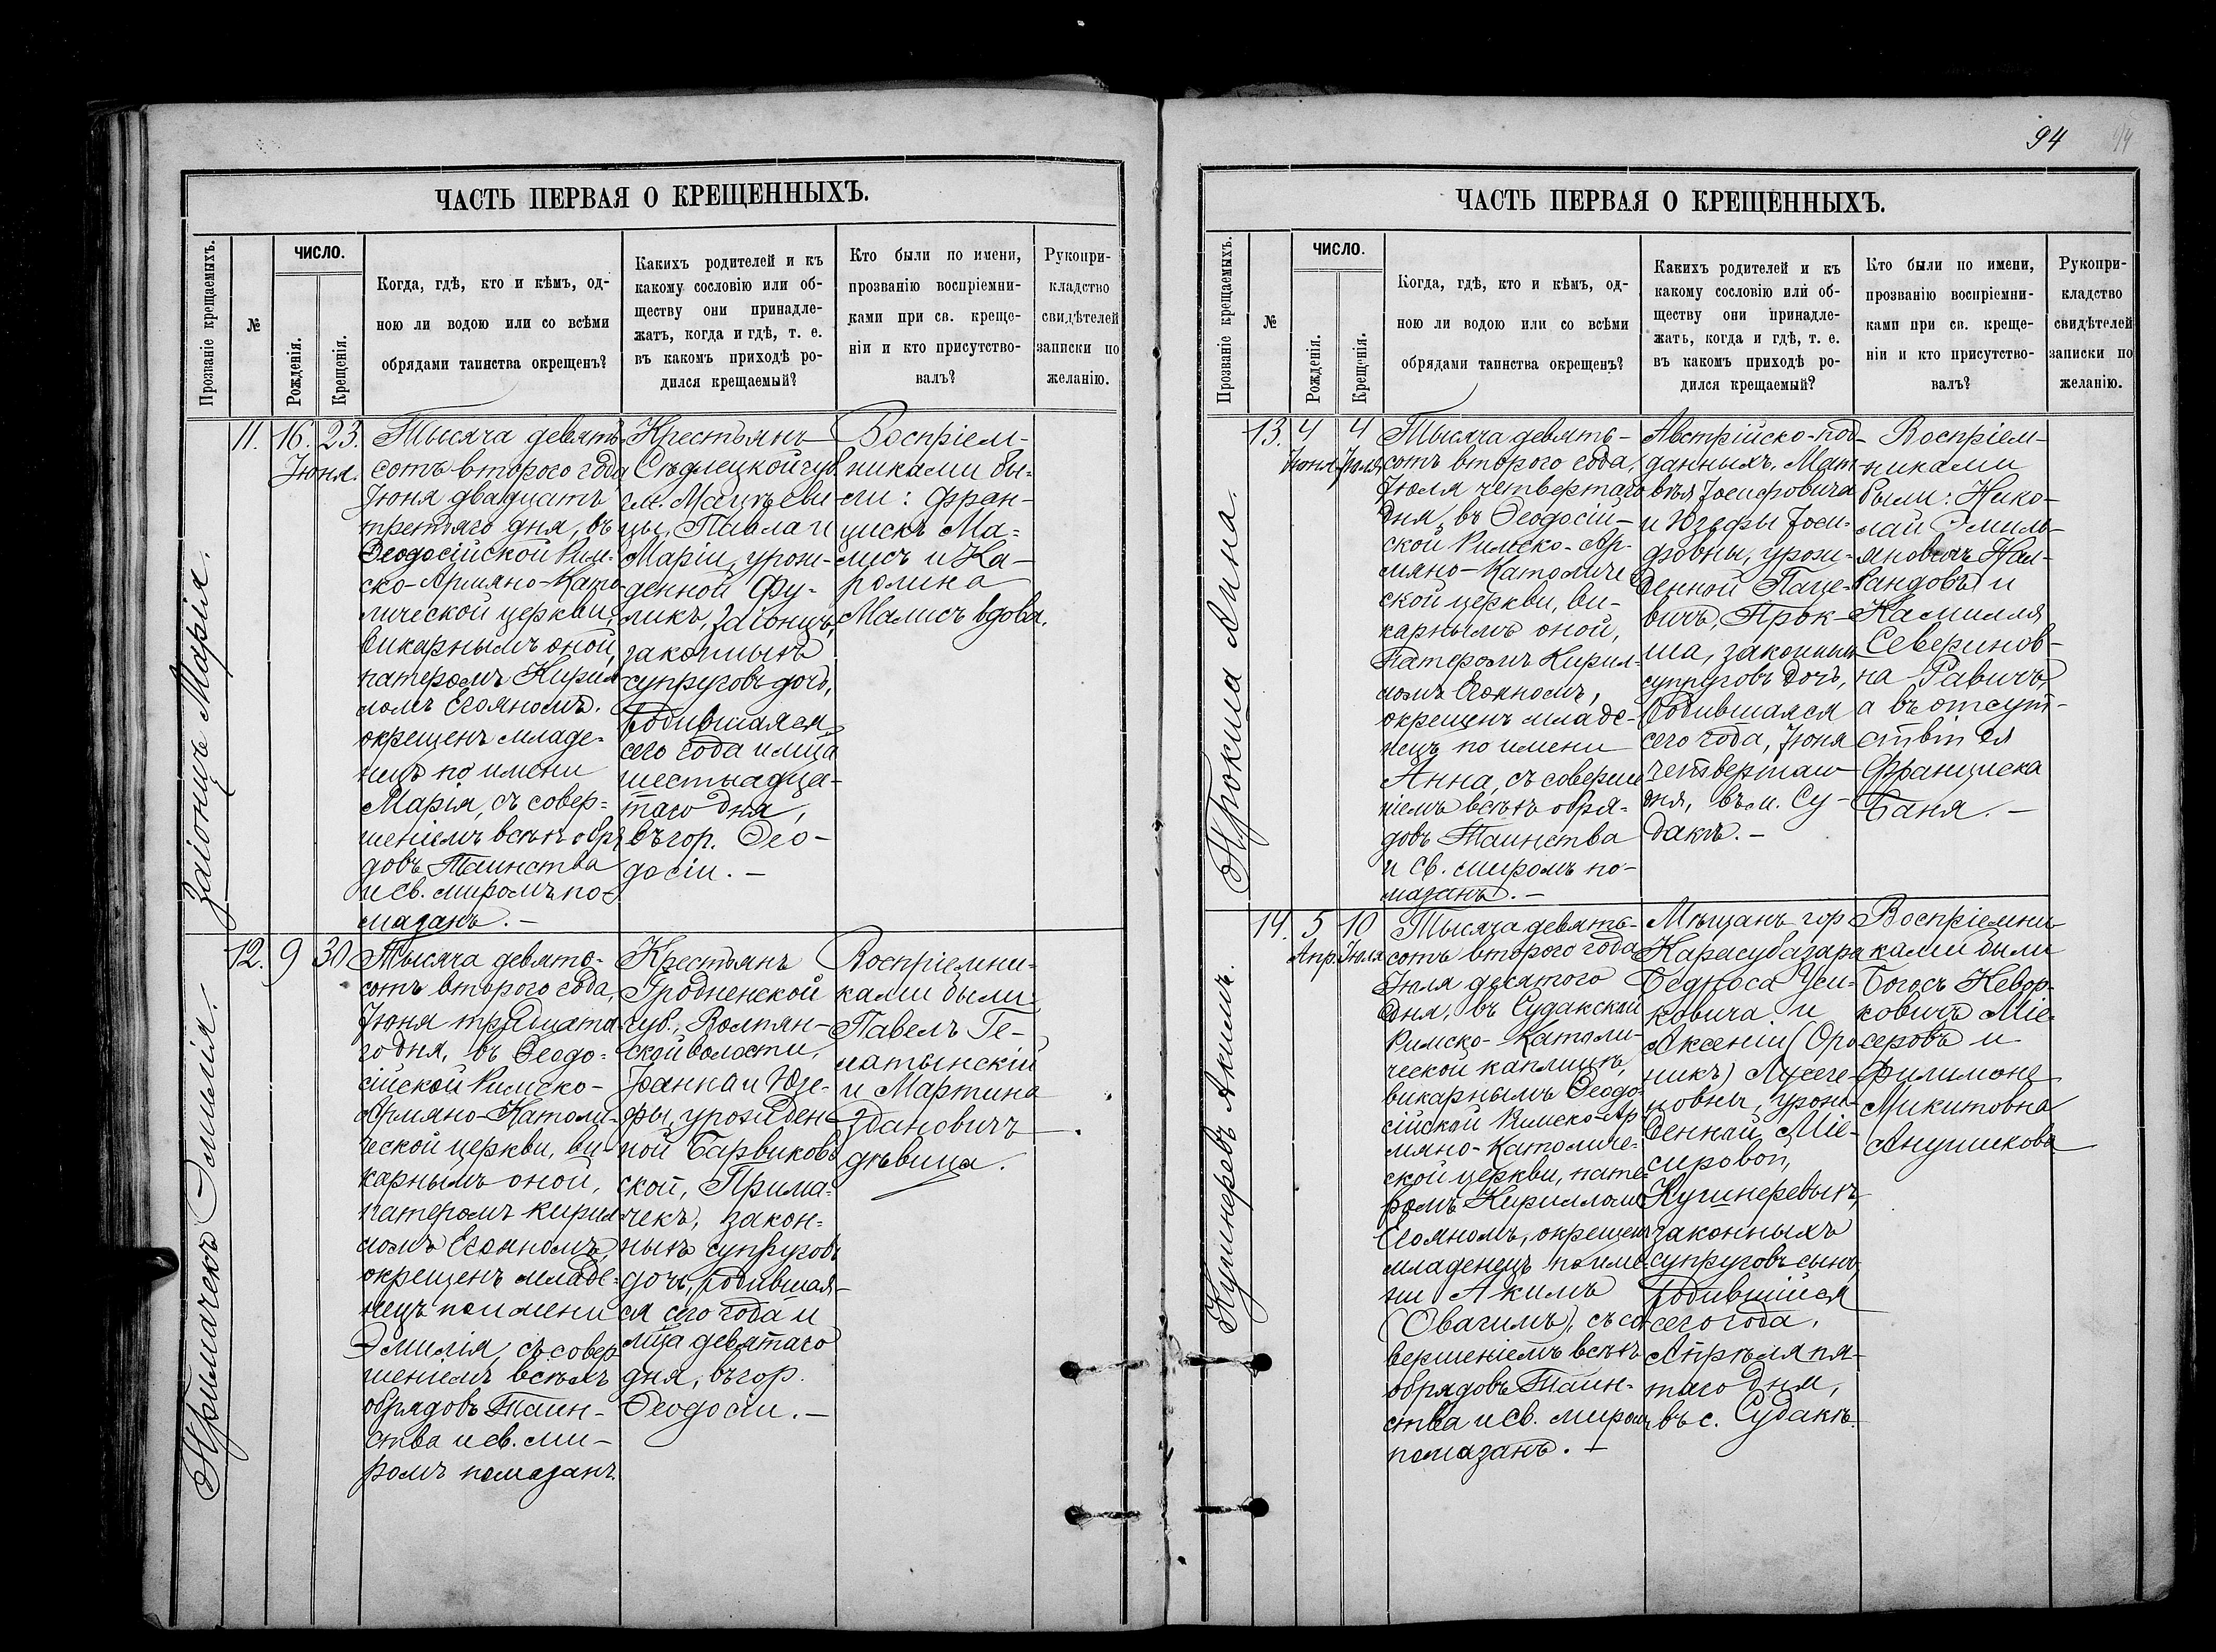 ЧАСТЬ ПЕРВАЯ О КРЕЩЕННЫХЪ.
Прозваніе крещаемыхъ.
№
ЧИСЛО.
Рожденія.
Крещенія.
Когда, гдѣ, кто и кѣмъ, од-
ною ли водою или со всѣми
обрядами таинства окрещенъ?
Какихъ родителей и къ
какому сословію или об-
ществу они принадле-
жатъ, когда и гдѣ, т. е.
въ какомъ приходѣ ро-
дился крещаемый?
Кто были по имени,
прозванію воспріемни-
ками при св. креще-
ніи и кто присутство-
валъ?
Рукопри-
кладство
свидѣтелей
записки по
желанію.
Заіонцъ Марія.
11.
16.
23.
Іюня.
Тысяча девять-
сотъ второго года
Іюня двадцать
третяго дня, въ
Ѳеодосійской Рим-
ско-Армяно-Като-
лической церкви,
викарнымъ оной,
патеромъ Кирил-
ломъ Егояномъ.
окрещенъ младе-
нецъ по имени
Марія, съ совер-
шеніемъ всѣхъ обря
довъ Таинства
и св. миромъ по-
мазанъ.-
Крестьянъ
Сѣдлецкой губ.
гм. Мацѣеви
цы, Павла и
Маріи, урож-
денной Фу-
ликъ, Заіонцъ,
законныхъ
супруговъ дочь,
родившаяся
сего года и мца
шестнадца-
таго дня,
въ гор. Ѳео-
досіи.-
Воспріем-
никами бы-
ли: Фран-
цискъ Ма-
лисъ и Ка-
ролина
Малисъ вдова.
Примачекъ Эмилія.
12.
9
30
Тысяча девято-
сотъ второго года,
Іюня тридцата-
го дня, въ Ѳеодо-
сійской Римско-
Армяно-Католи-
ческой церкви, ви-
карнымъ оной,
патеромъ Кирил-
ломъ Егояномъ,
окрещенъ младе-
нецъ по имени
Эмилія, съ совер-
шеніемъ всѣхъ
обрядовъ Таин-
ства и св. ми-
ромъ помазанъ.
Крестьянъ
Гродненской
губ., Волпян-
ской волости,
Іоанна и Юзе-
фы, урожден-
ной Барвиков-
ской, Прима-
чекъ, закон-
ныхъ супруговъ
дочь, родившая-
ся сего года и
мца девятаго
дня, въ гор.
Ѳеодосіи.-
Воспріемни-
ками были
Павелъ Ге-
латынскій
и Мартина
Здановичъ
дѣвица.
94
ЧАСТЬ ПЕРВАЯ О КРЕЩЕННЫХЪ.
Прозваніе крещаемыхъ.
№
ЧИСЛО.
Рожденія.
Крещенія.
Когда, гдѣ, кто и кѣмъ, од-
ною ли водою или со всѣми
обрядами таинства окрещенъ?
Какихъ родителей и къ
какому сословію или об-
ществу они принадле-
жатъ, когда и гдѣ, т. е.
въ какомъ приходѣ ро-
дился крещаемый?
Кто были по имени,
прозванію воспріемни-
ками при св. креще-
ніи и кто присутство-
валъ?
Рукопри-
кладство
свидѣтелей
записки по
желанію.
Прокша Анна.
13.
4
Іюня
4
Іюля
Тысяча девять-
сотъ второго года,
Іюля четвертаго
дня, въ Ѳеодосій-
ской Римско-Ар-
мяно-Католиче
ской церкви, ви-
карнымъ оной,
патеромъ Кирил-
ломъ Егояномъ,
окрещенъ младе-
нецъ по имени
Анна, съ соверше
ніемъ всѣхъ обря-
довъ Таинства
и св. миромъ по-
мазанъ.-
Австрійско-под-
данныхъ, Мат-
вѣя Іосифовича
и Юзефы Іоси-
фовны, урож-
денной Паце-
вичъ, Прок-
ша, законныхъ
супруговъ дочь,
родившаяся
сего года, Іюня
четвертаго
дня, въ м. Су-
дакѣ.-
Воспріем-
никами
были: Нико-
лай Эмиль-
яновичъ Нал-
бандовъ и
Камилля
Северинов-
на Равичъ,
а въ отсут-
ствіи ея
Франциска
Баня.-
Кушнеревъ Акимъ.
14.
5
Апр.
10
Іюля
Тысяча девять-
сотъ второго года
Іюля десятого
дня, въ Судакской
Римско-Католи-
ческой каплицѣ,
викарнымъ Ѳеодо-
сійской Римско-Ар-
мяно-Католиче-
ской церкви, пате-
ромъ Кирилломъ
Егояномъ, окрещенъ
младенецъ по име-
ни Акимъ
(Овагимъ), съ со-
вершеніемъ всѣхъ
обрядовъ Таин-
ства и св. миромъ
помазанъ.-
Мѣщанъ гор
Карасубазара
Бедроса Уси-
ковича и
Аксеніи (Оро
никъ)
урож-
деннойМіе-
Кушнеревыхъ,
законныхъ
супруговъ сынъ,
родившійся
сего года,
Апрѣля пя-
таго дня,
въ с. Судакѣ.
Воспріемни-
ками были
Богосъ Кевор-
ковичъ Міе-
серовъ и
Филимоне
Микитовна
Анушикова